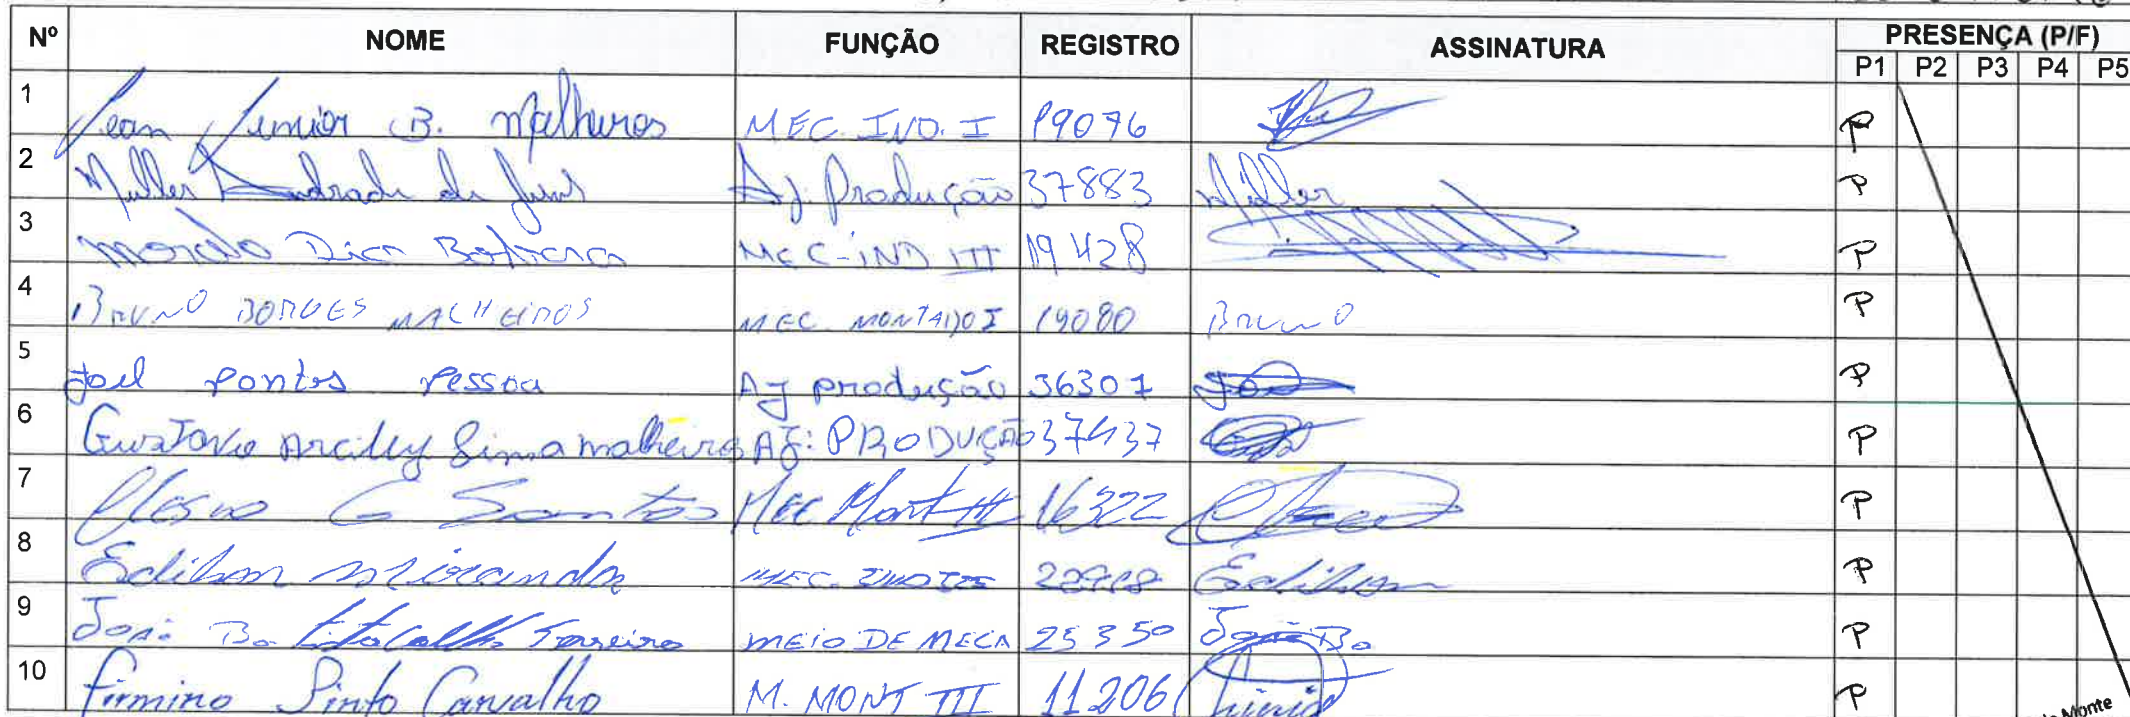 Nº NOME FUNÇÃO REGISTRO ASSINATURA PRESENÇA (P/F)
P1 P2 P3 P4 P5
1 Jean Junior B. Malheiros MEC. IND. I 19076 P
2 Muller Andrade de Aj. Produção 37883 Müller P
3 Dias MEC-IND III 19428 P
4 BRUNO BORGES MALHEIROS MEC. MONTADO I 19080 Bruno P
5 Joel Pontes Pessoa AJ produção 36307 P
6 Gustavo Arcilly Lima malheiros AJ: PRODUÇÃO 37437 P
7 C Santos Mec Mont III 16322 P
8 Edilson miranda MEC. Edilson P
9 João Ba Ferreira MEIO DE MECA 25350 João Ba P
10 Firmino Pinto Carvalho M. MONT III 11206 P
Monte